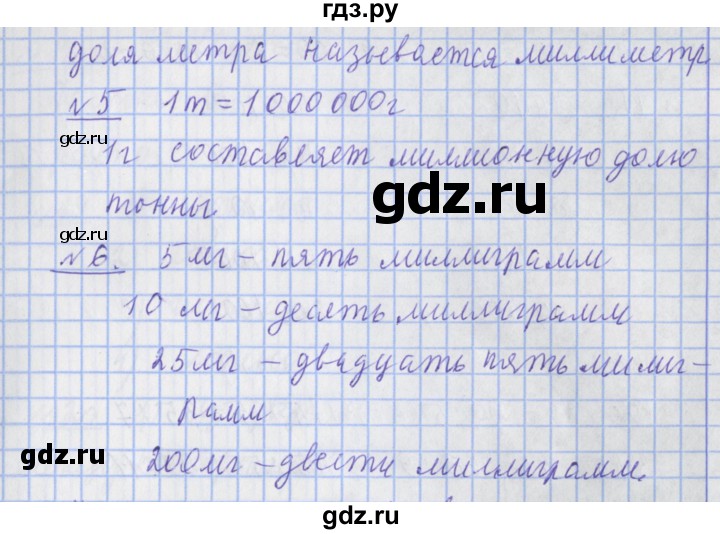 гдз.ру
доля метра называется миллиметр
№5 1т = 1000 000г
gdz.ru
1г составляет миллионную долю
gdz.ru
тонны
gdz.ru
№6. 5 мг – пять миллиграмм
10 мг – десять миллиграмм
25 мг – двадцать пять милиг-
рамм
gdz.ru
200 мг – двести миллиграмм.
gdz.ru
gdz.ru